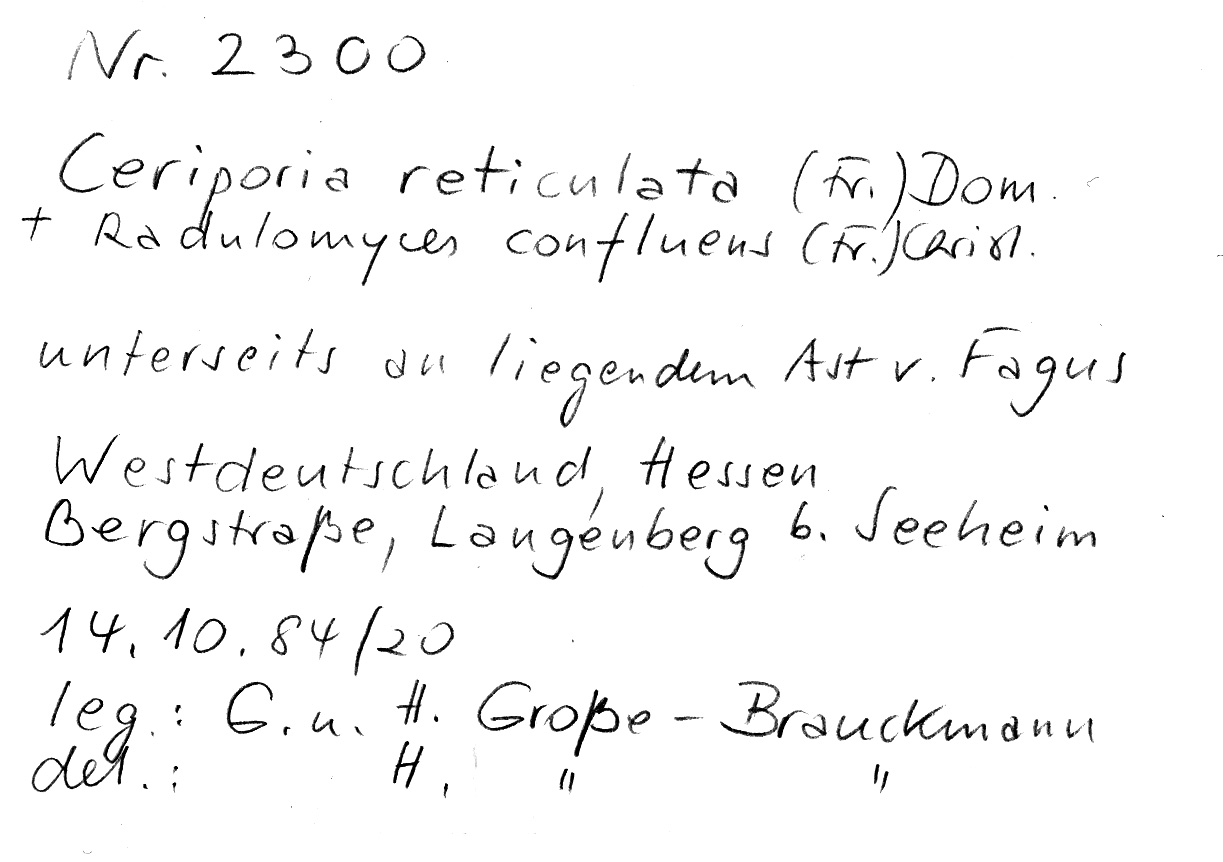 Nr. 2300
Ceriporia reticulata (Fr.) Dom.
+ Radulomyces confluens (Fr.) Christ.
unterseits an liegendem Ast v. Fagus
Westdeutschland, Hessen
Bergstraße, Langenberg b. Seeheim
14.10.84/20
leg.: G. u. H. Große-Brauckmann
det.: H. " "